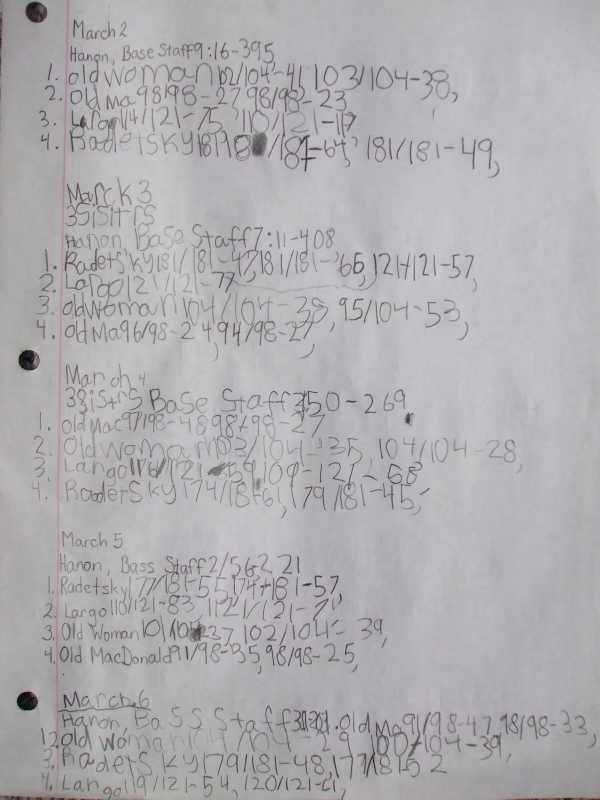 March 2
Hanon, Base Staff 9:16-395
1. old woman 102/104-41 103/104-38,
2. Old Ma 98/98-27 98/98-23
3. Largo 114/121-75 110/121-117
4. Radetsky 181/181-64, 181/181-49,
March 3
3 Sisitrs
Hanon, Base Staff 7:11-408
1. Radetsky 181/181-47, 181/181-66, 121/121-57,
2. Largo 121/121-77
3. old woman 104/104-38, 95/104-53,
4. old Ma 96/98-24, 94/98-27,
March 4
3 Sistrs Base Staff 350-269
1. old Mac 97/98-48 98/98-27
2. Old Woman 103/104-35 104/104-28,
3. Largo 116/121-59, 109-121-58
4. Radetsky 174/181-61, 179/181-45,
March 5
Hanon, Bass Staff 2/56-221
1. Radetsky 177/181-55, 174/181-57,
2. Largo 110/121-83 1121/121-71
3. Old Woman 101/104-37 102/104-39,
4. Old MacDonald 91/98-35, 98/98-25,
March 6
Hanon, Bass Staff 1. Old Ma 91/98-47 98/98-33,
2. old woman 104/104-29 100/104-39,
3. Radetsky 179/181-48, 177/181-52
4. Largo 119/121-54, 120/121-61,